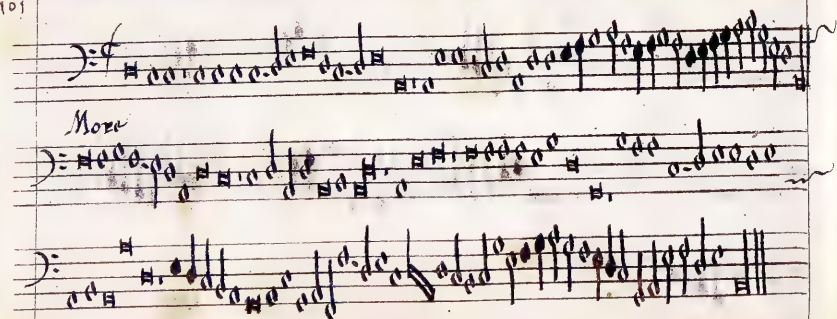 101
More